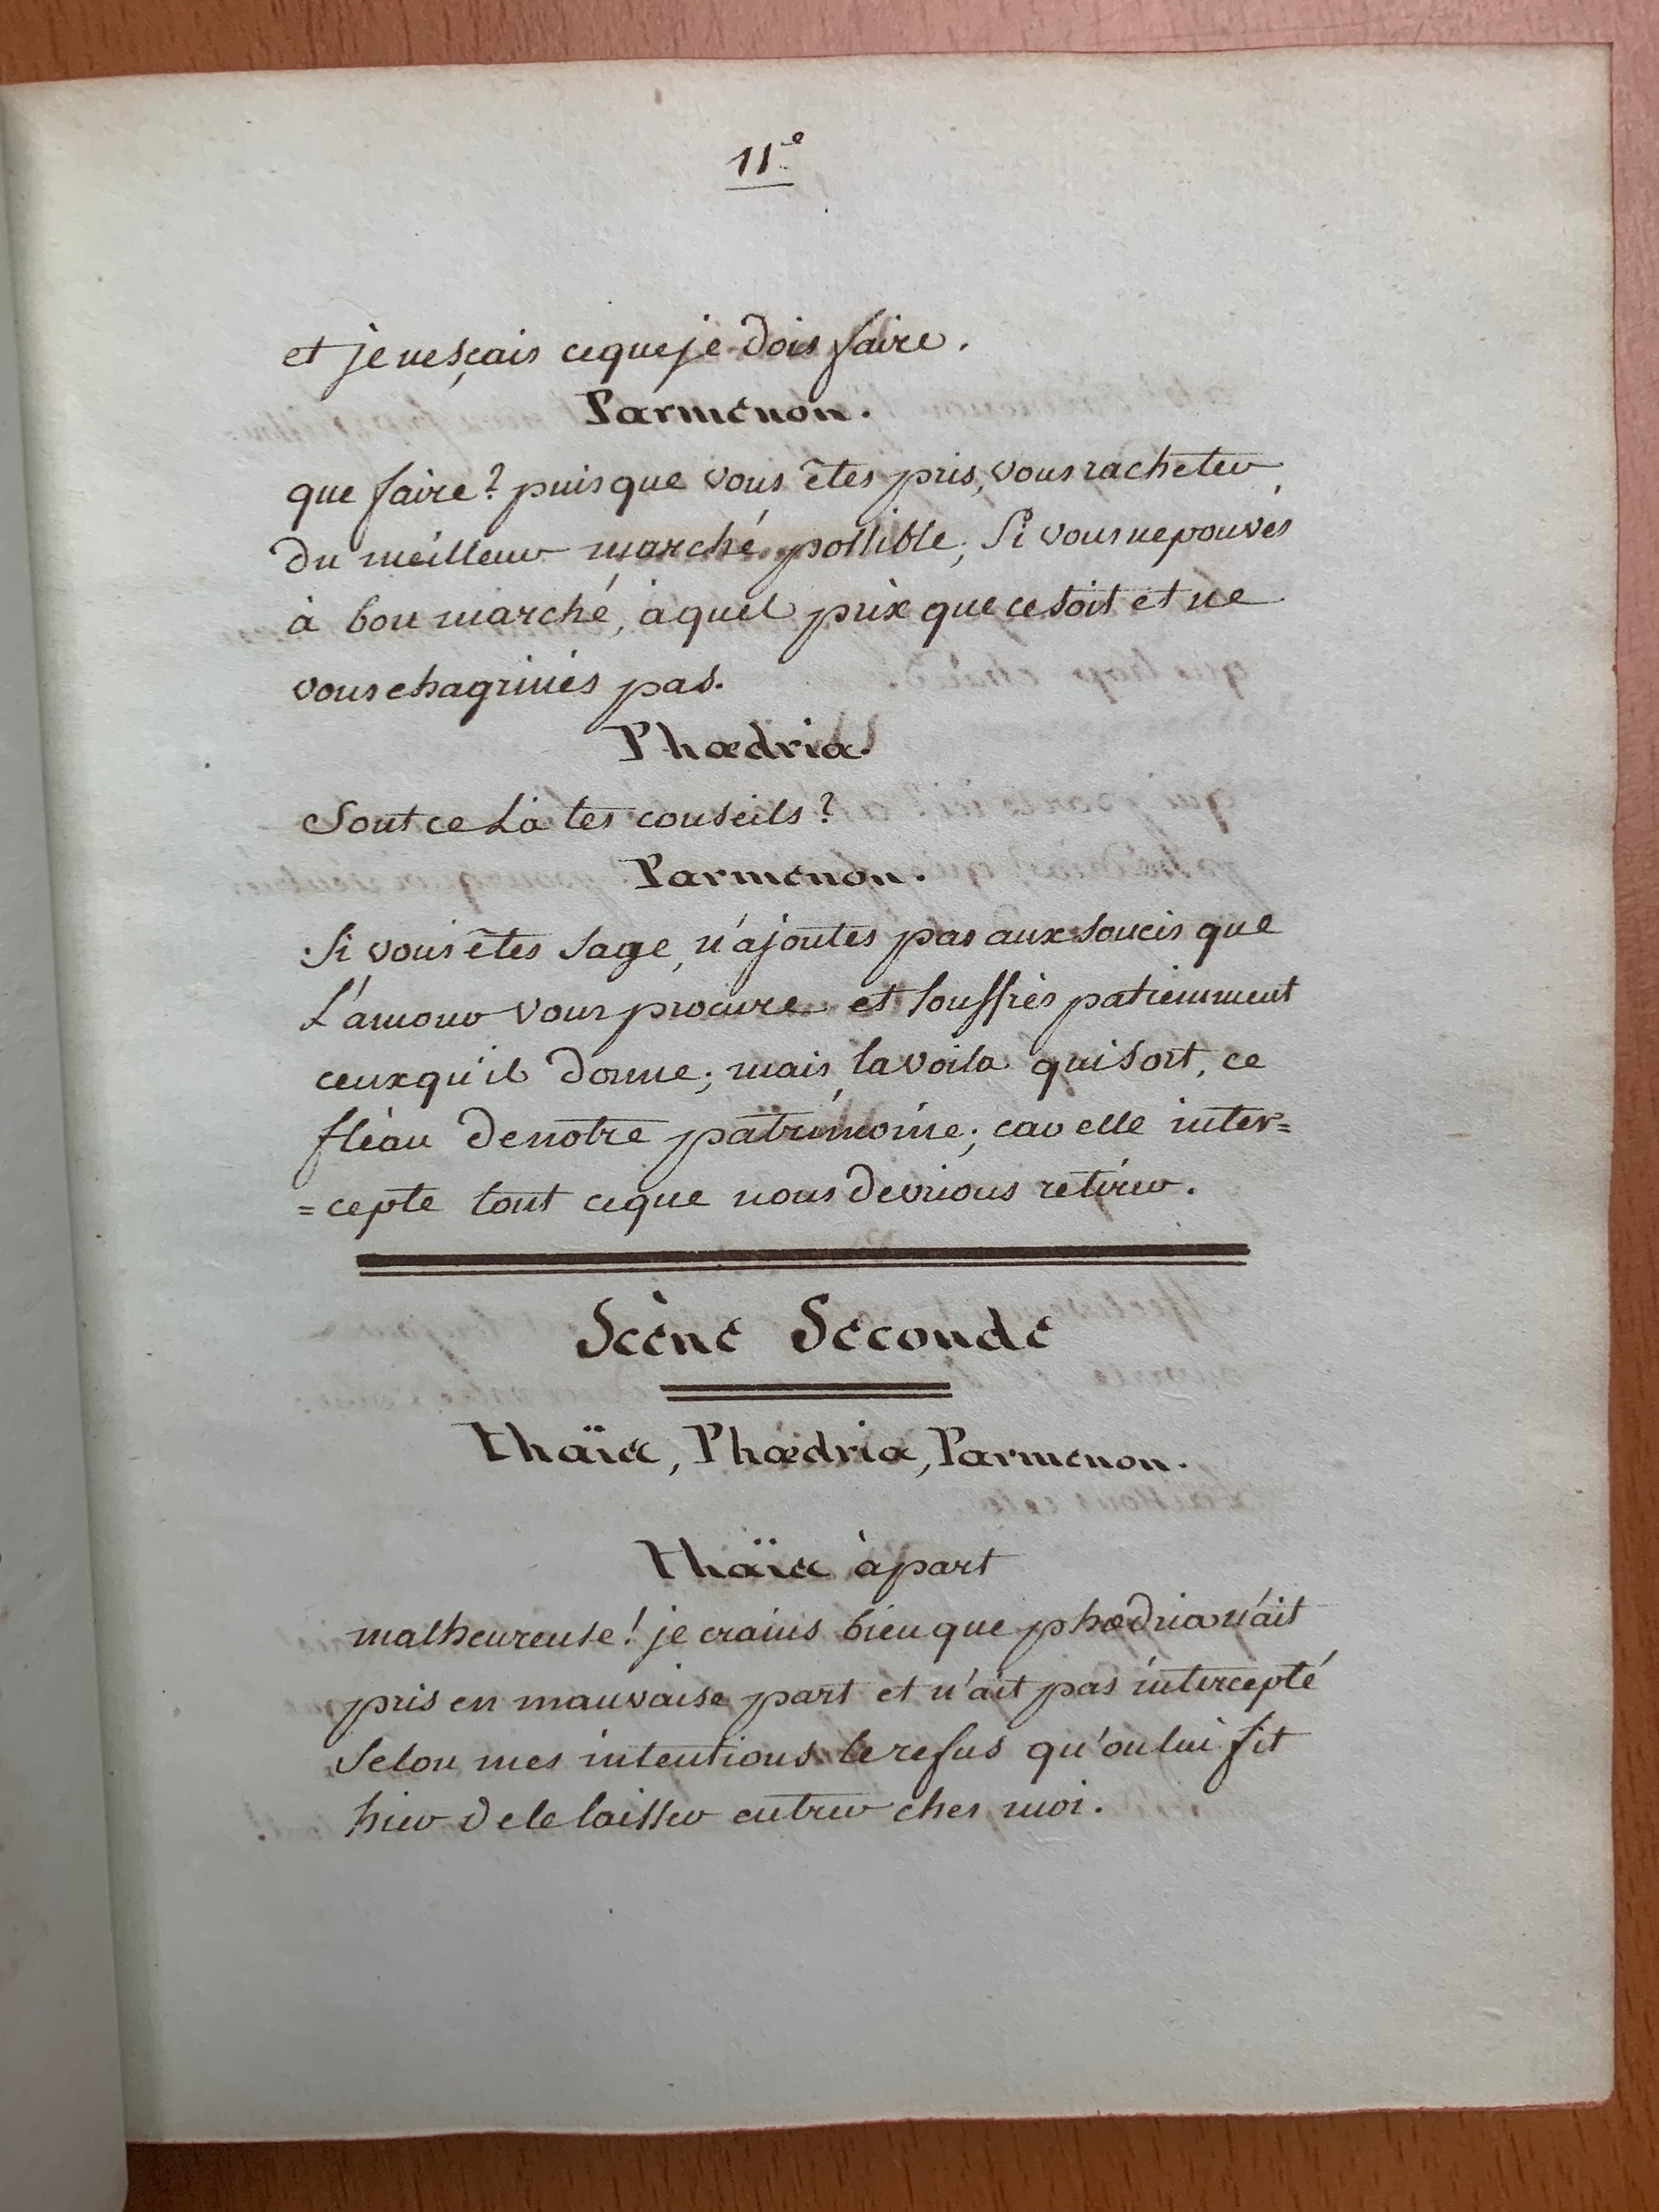 11.e
et je ne sçais ce que je dois faire.
Parménon.
que faire? puisque vous êtes pris, vous racheter
du meilleur marché possible, si vous ne pouvés
à bon marché, à quel prix que ce soit et ne
vous chagrinés pas.
Phœdria.
Sont ce là tes conseils?
Parménon.
Si vous êtes sage, n'ajoutés pas aux soucis que
L'amour vous procure et souffrés patiemment
ceux qu'il donne; mais la voila qui sort, ce
fléau de notre patrimoine; car elle inter=
=cepte tout ce que nous devrions retirer.
Scène Seconde
Thaïs, Phœdria, Parménon.
Thaïs à part
malheureuse! je crains bien que phœdria n'ait
pris en mauvaise part et n'ait pas intercepté
Selon mes intentions le refus qu'on lui fit
hier de le laisser entrer chés moi.